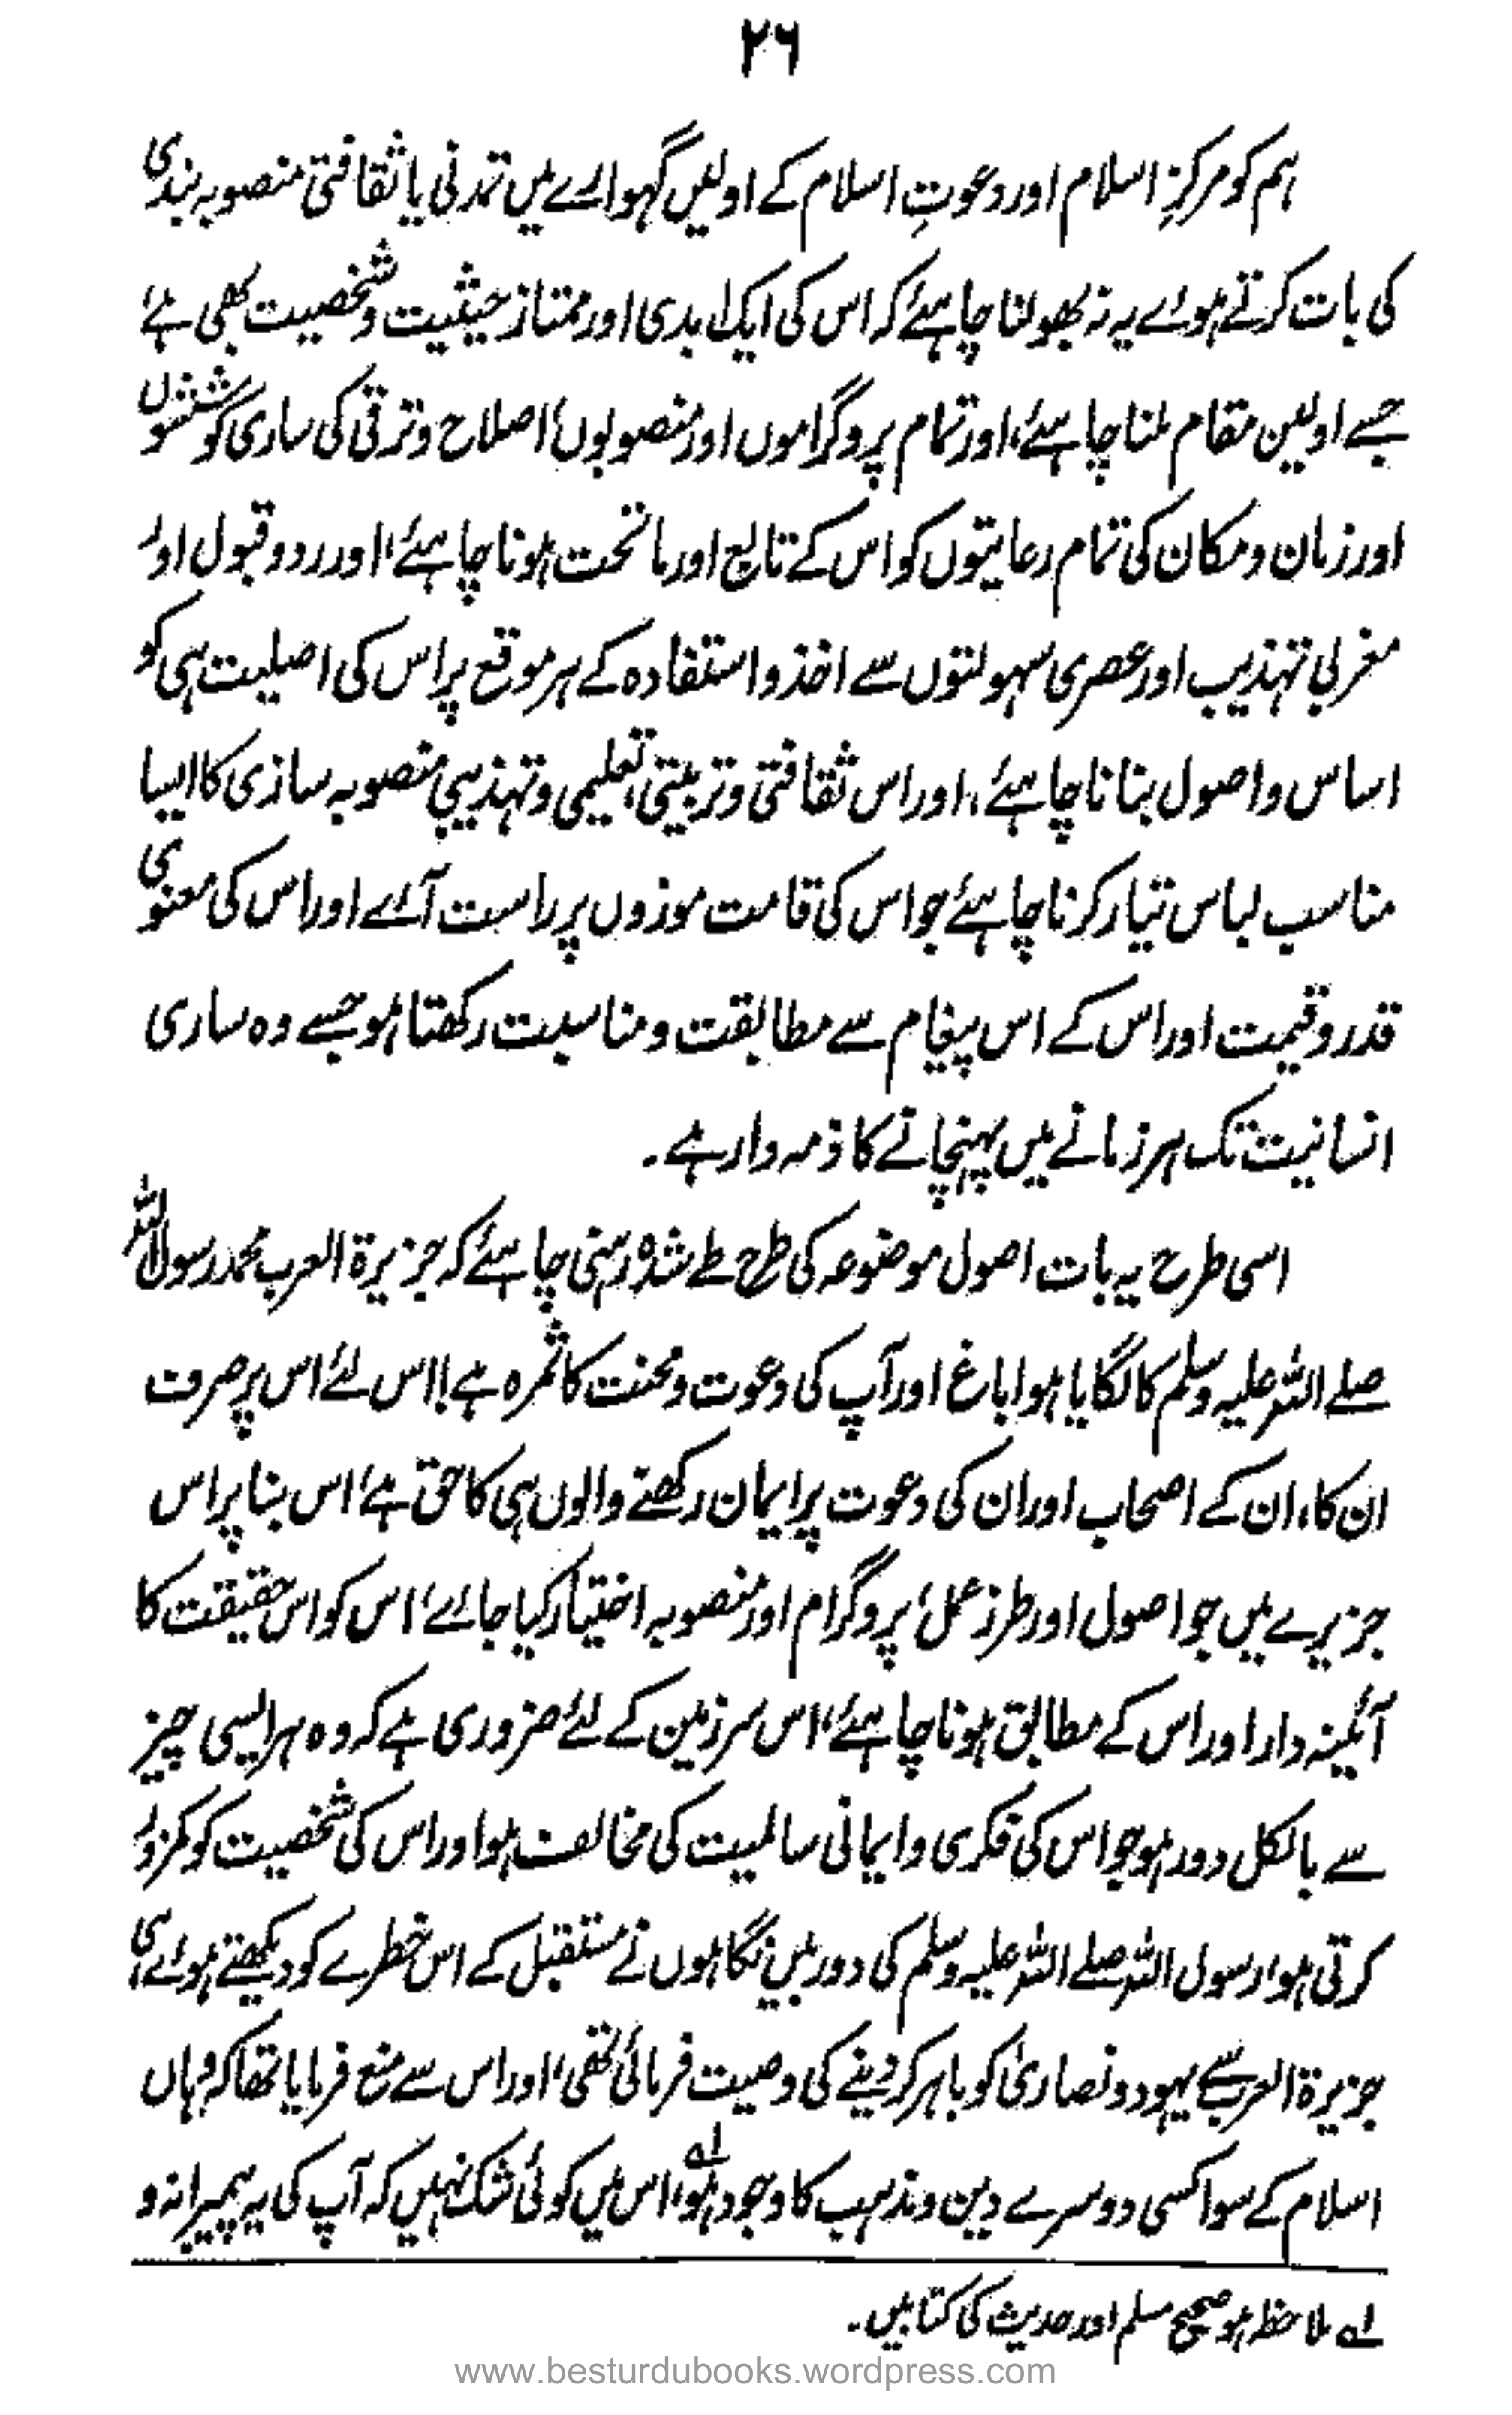 ۲۶
ہم کو مرکزِ اسلام اور دعوتِ اسلام کے اولیں گہوارے میں تمدنی یا ثقافتی منصوبہ بندی
کی بات کرتے ہوئے یہ نہ بھولنا چاہئے کہ اس کی ایک ابدی اور ممتاز حیثیت و شخصیت بھی ہے
جسے اولین مقام ملنا چاہئے، اور تمام پروگراموں اور منصوبوں، اصلاح و ترقی کی ساری کوششوں
اور زمان و مکان کی تمام رعایتوں کو اس کے تابع اور ماتحت ہونا چاہئے، اور رد و قبول اور
مغربی تہذیب اور عصری سہولتوں سے اخذ و استفادہ کے ہر موقع پر اس کی اصلیت ہی کو
اساس و اصول بنانا چاہئے، اور اس ثقافتی و تربیتی، تعلیمی و تہذیبی منصوبہ سازی کا ایسا
مناسب لباس تیار کرنا چاہئے جو اس کی قامت موزوں پر راست آئے اور اس کی معنوی
قدر و قیمت اور اس کے اس پیغام سے مطابقت و مناسبت رکھتا ہو جسے وہ ساری
انسانیت تک ہر زمانے میں پہنچانے کا ذمہ دار ہے۔
اسی طرح یہ بات اصول موضوعہ کی طرح طے شدہ رہنی چاہئے کہ جزیرۃ العرب محمد رسول اللہ
صلے اللہ علیہ وسلم کا لگایا ہوا باغ اور آپ کی دعوت و محنت کا ثمرہ ہے! اس لئے اس پر صرف
ان کا، ان کے اصحاب اور ان کی دعوت پر ایمان رکھنے والوں ہی کا حق ہے، اس بنا پر اس
جزیرے میں جو اصول اور طرز عمل، پروگرام اور منصوبہ اختیار کیا جائے، اس کو اس حقیقت کا
آئینہ دار اور اس کے مطابق ہونا چاہئے، اس سرزمین کے لئے ضروری ہے کہ وہ ہر ایسی چیز
سے بالکل دور ہو جو اس کی فکری و ایمانی سالمیت کی مخالف ہو اور اس کی شخصیت کو کمزور
کرتی ہو، رسول اللہ صلے اللہ علیہ وسلم کی دور بیں نگاہوں نے مستقبل کے اس خطرے کو دیکھتے ہوئے ہی
جزیرۃ العرب سے یہود و نصاریٰ کو باہر کر دینے کی وصیت فرمائی تھی، اور اس سے منع فرمایا تھا کہ وہاں
اسلام کے سوا کسی دوسرے دین و مذہب کا وجود ہو، لہ اس میں کوئی شک نہیں کہ آپ کی یہ پیمبرانہ و
لہ ملاحظہ ہو صحیح مسلم اور حدیث کی کتابیں۔
www.besturdubooks.wordpress.com